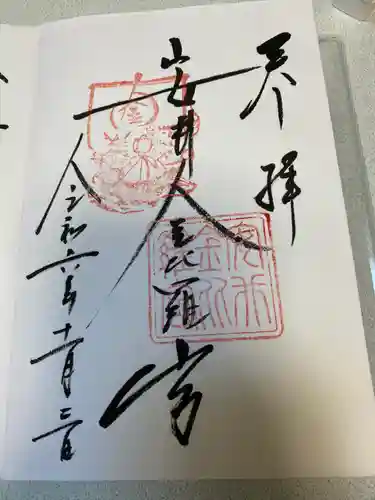 奉拝
安井金比羅宮
令和六年十一月二日